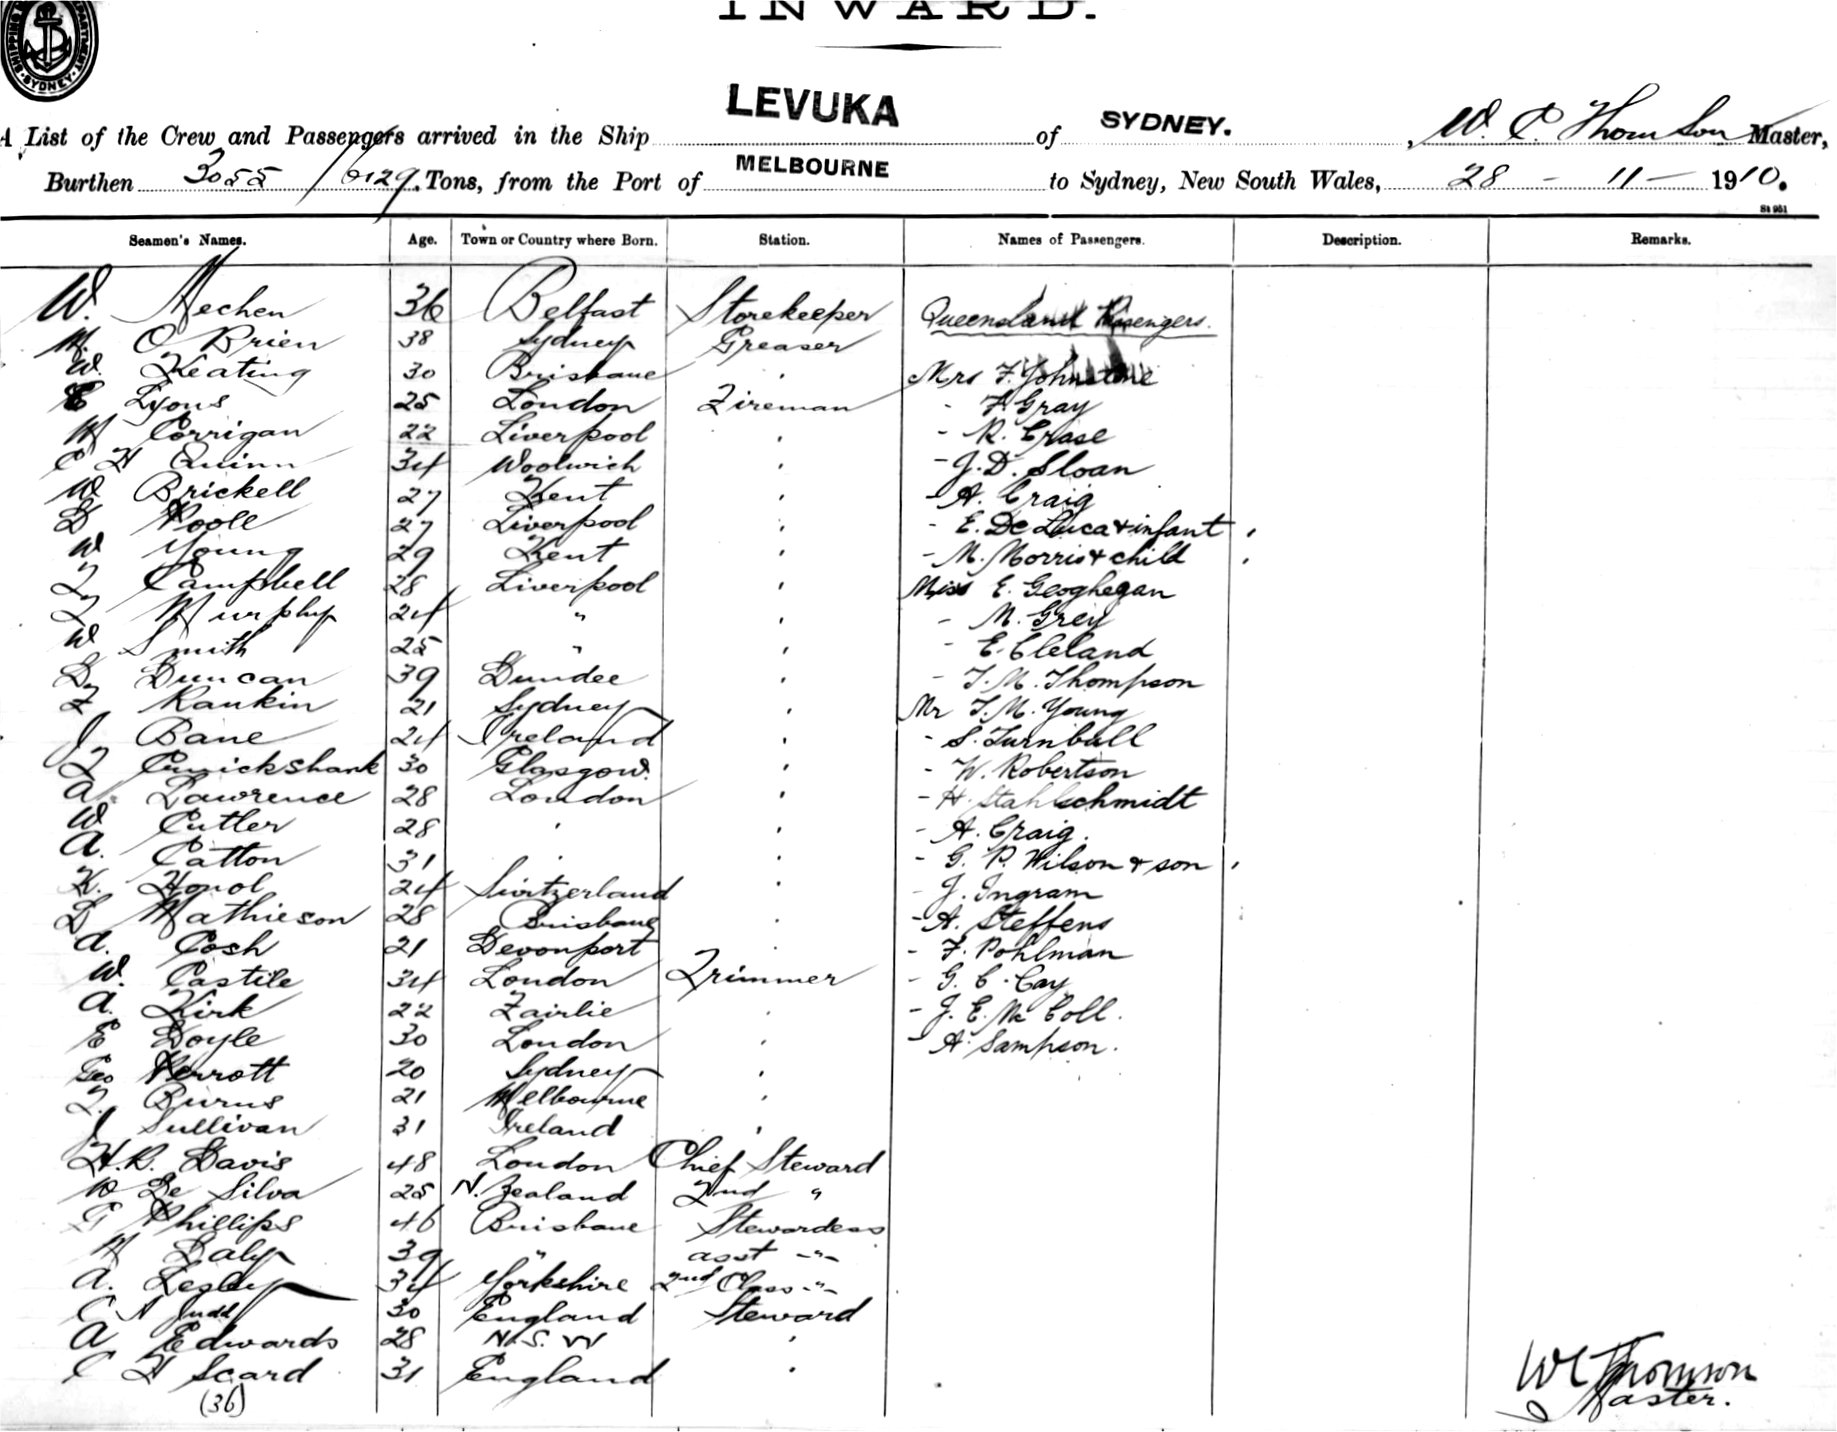 SHIPPING DEPARTMENT SYDNEY
INWARD.
A List of the Crew and Passengers arrived in the Ship LEVUKA of SYDNEY. , W. C. Thomson Master,
Burthen 3055 / 6129 Tons, from the Port of MELBOURNE to Sydney, New South Wales, 28 - 11 - 1910.
St 951
Seamen's Names. Age. Town or Country where Born. Station. Names of Passengers. Description. Remarks.
W. Mechen 36 Belfast Storekeeper Queensland Passengers.
M. O Brien 38 Sydney Greaser
W. Keating 30 Brisbane ' Mrs F. Johnstone
E Lyons 25 London Fireman - F. Gray
M Corrigan 22 Liverpool ' - R. Crase
C H Quinn 34 Woolwich ' - J. D. Sloan
W Brickell 27 Kent ' - A. Craig
D Poole 27 Liverpool ' - E. De Luca & infant '
W Young 29 Kent ' - M. Morris & child '
T Campbell 28 Liverpool ' Miss E. Geoghegan
T Murphy 24 " ' - M. Grey
W Smith 25 " ' - E. Cleland
D Duncan 39 Dundee ' - T. M. Thompson
T Rankin 21 Sydney ' Mr T. M. Young
J Bane 24 Ireland ' - S. Turnbull
T Cruickshank 30 Glasgow. ' - W. Robertson
A. Lawrence 28 London ' - H. Stahlschmidt
W Cutler 28 ' ' - A. Craig.
A. Catton 31 ' ' - G. P. Wilson & son '
K. Honol 24 Switzerland ' - J. Ingram
D Mathieson 28 Brisbane ' - A. Steffens
A. Cosh 21 Devonport ' - F. Pohlman
W. Castile 34 London Trimmer - G. C. Cay
A. Kirk 22 Fairlie ' - J. E. Mc Coll.
E Doyle 30 London ' - A. Sampson.
Geo Perrott 20 Sydney '
T. Burns 21 Melbourne '
J Sullivan 31 Ireland '
H. B. Davis 48 London Chief Steward
W De Silva 25 N. Zealand 2nd "
G Phillips 46 Brisbane Stewardess
M Daly 39 " asst -"-
A. Lesley 34 Yorkshire 2nd Class -"-
C A Judd 30 England Steward
A Edwards 28 N.S.W '
C H Scard 31 England '
(36)
W C Thomson
Master.